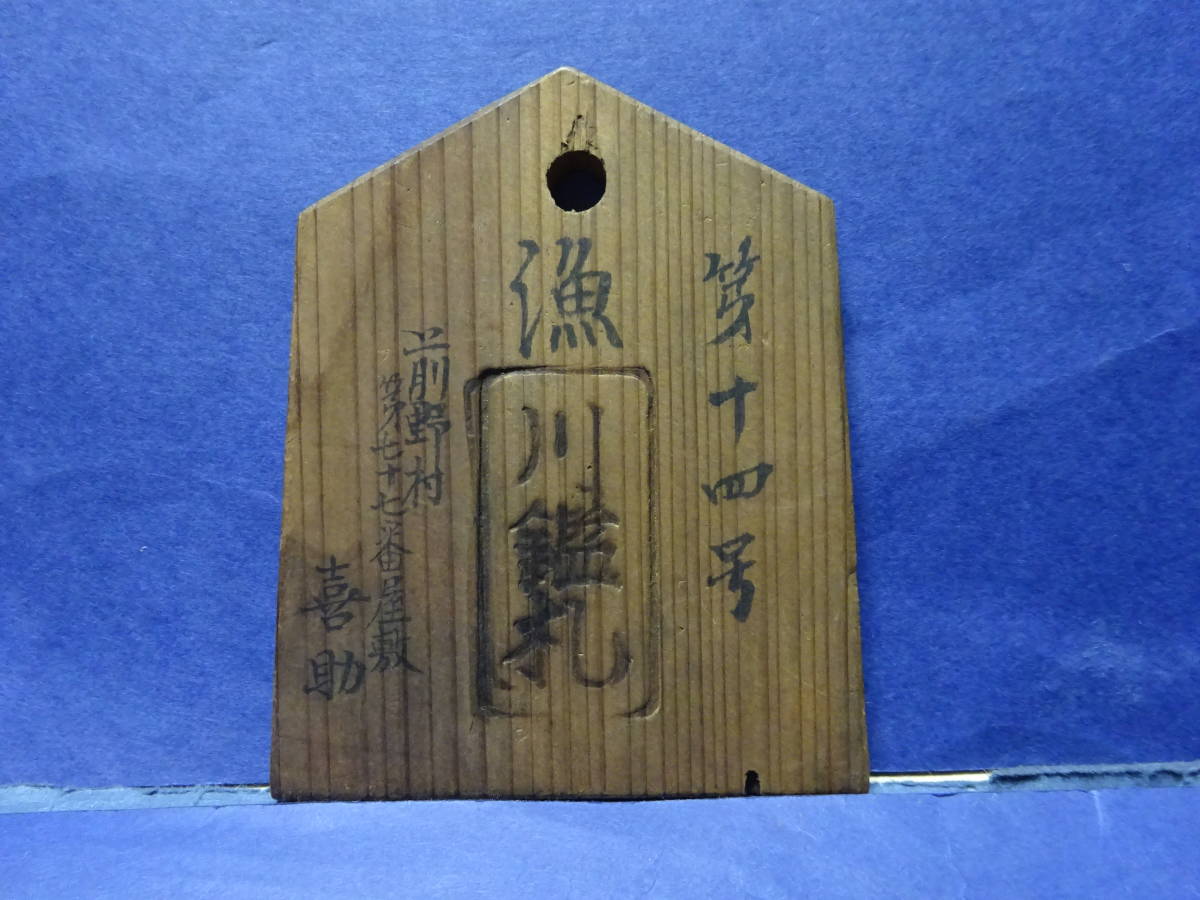 第十四号
漁
川鑑札
上前野村
第七十七番屋敷
喜助